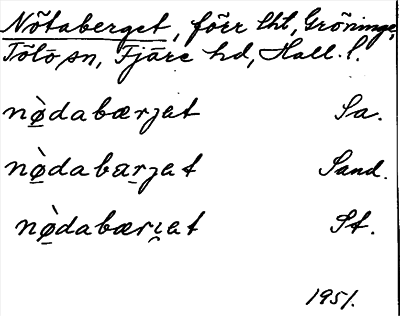 Nötaberget, förr lht, Gröninge,
Tölö sn, Fjäre hd, Hall. l.
nø̀dabærjat Sa.
nø̀dabærjat Sand.
nø̀dabæri̯at St.
1951.